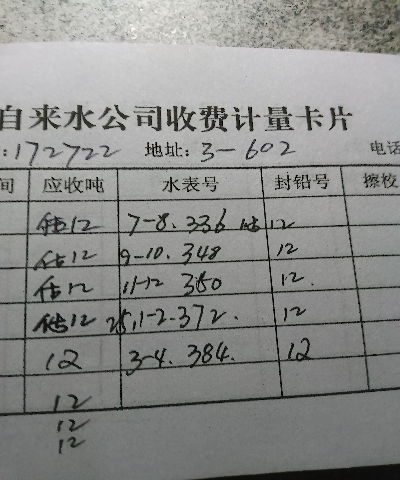 自来水公司收费计量卡片
:172722 地址: 3-602 电话
间 应收吨 水表号 封铅号 擦校
估12 7-8. 336 估 12
估12 9-10. 348 12
估12 11-12 360 12.
估12 25,1-2.372. 12
12 3-4. 384. 12
12
12
12